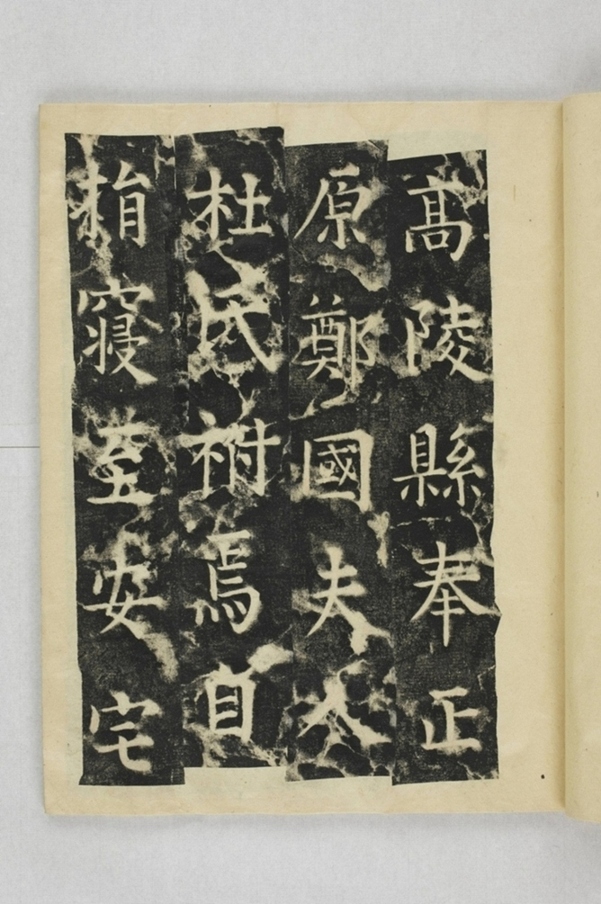 高陵縣奉正
原鄭國夫人
杜氏祔焉自
捐寢至安宅